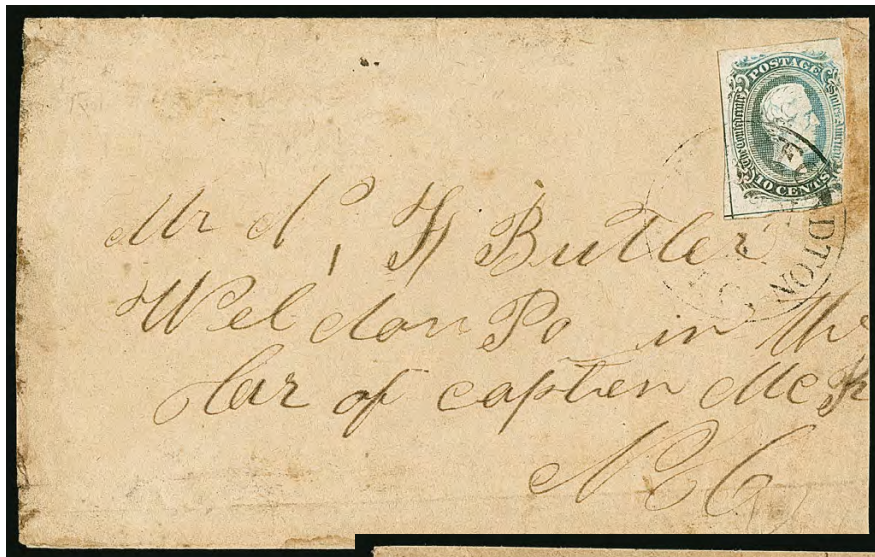 POSTAGE
The Confederate States America
10 CENTS
DTON
Mr N F Butler
Weldon Po in the
Car of capten McK
N C